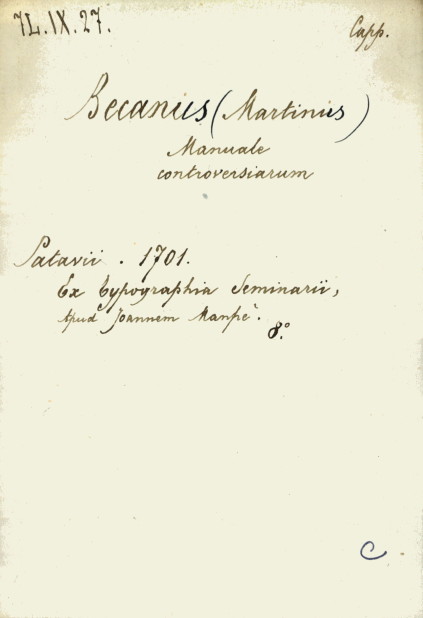 71.IX.27.
Capp.
Becanus (Martinus)
Manuale
controversiarum
Patavii. 1701.
Ex typographia Seminarii,
apud Joannem Manfrè.
8.°
C